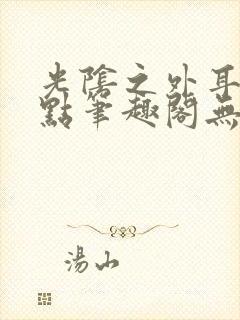 光陰之外耳
點筆趣閣無
湯山